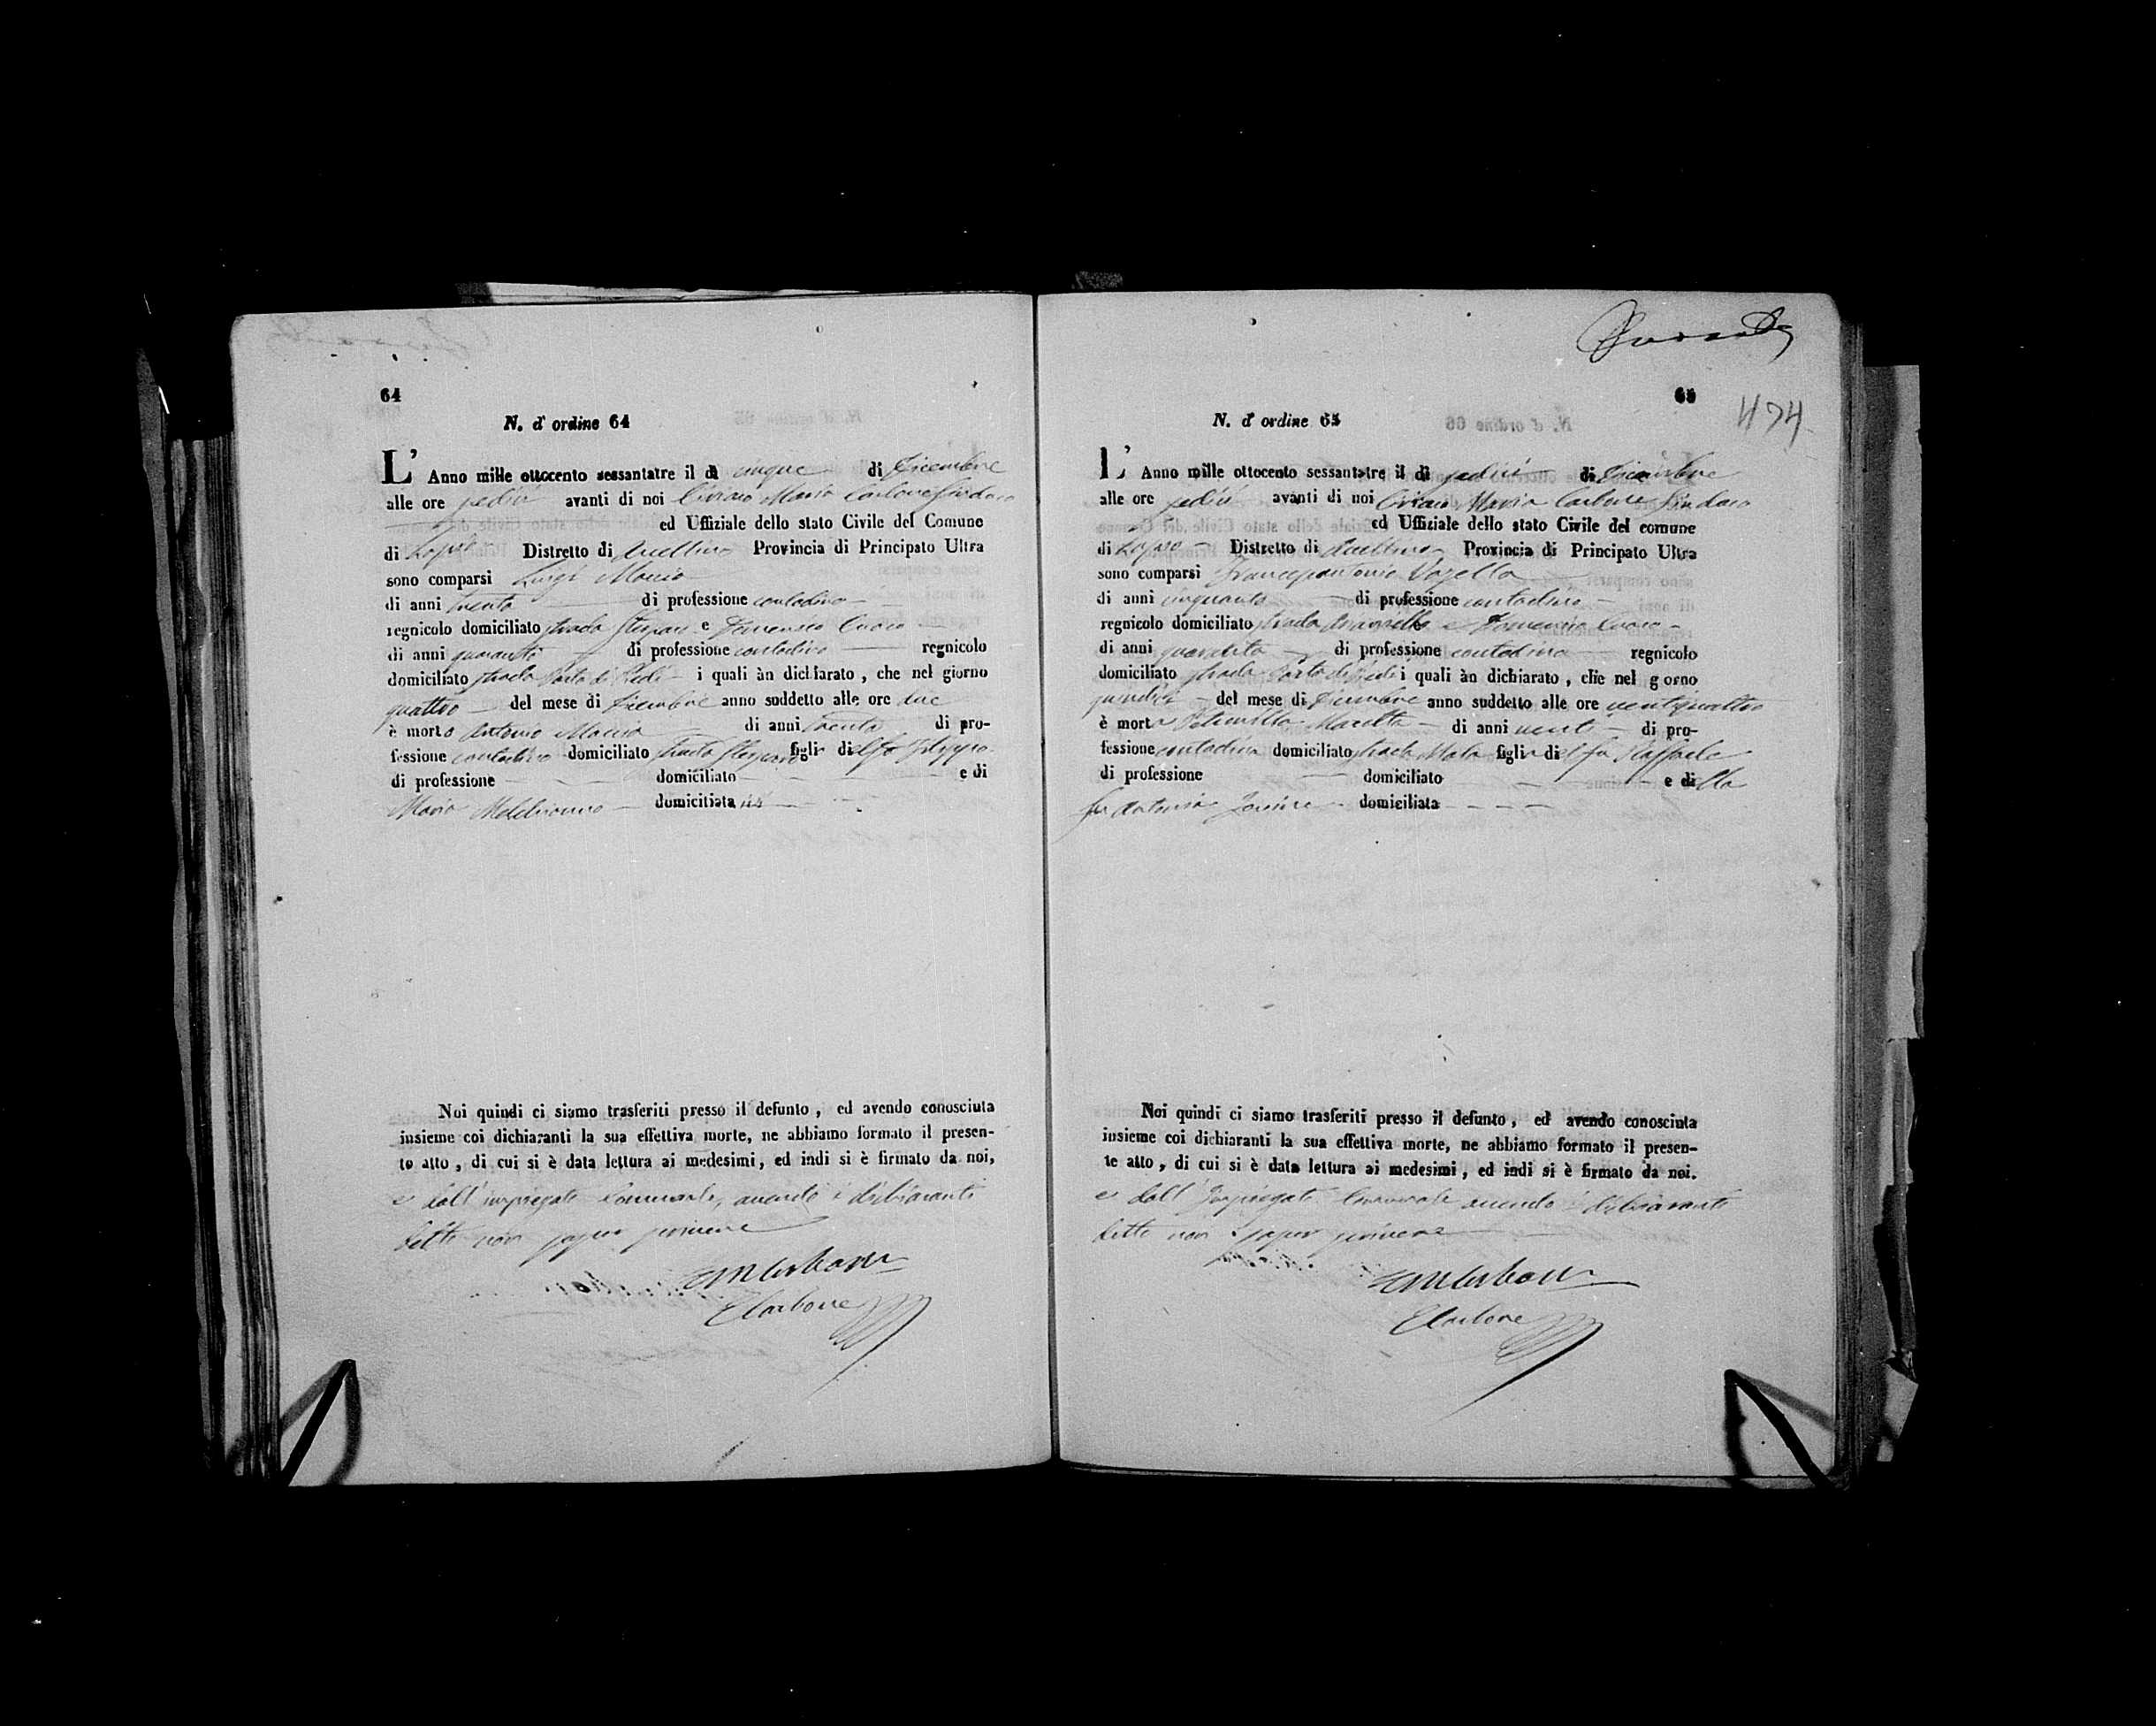 64
N. d' ordine 64
L' Anno mille ottocento sessantatre il dì cinque di Dicembre
alle ore sedici avanti di noi Ciriaco Maria Carbone Sindaco
ed Uffiziale dello stato Civile del Comune
di Lapio Distretto di Avellino Provincia di Principato Ultra
sono comparsi Luigi
di anni trenta di professione contadino
regnicolo domiciliato strada e Domenico
di anni quaranta di professione contadino regnicolo
domiciliato strada Porta di i quali àn dichiarato, che nel giorno
quattro del mese di Dicembre anno suddetto alle ore due
è morto Antonio di anni trenta di pro-
fessione contadino domiciliato strada figlio del fu Filippo
di professione domiciliato e di
Maria domiciliata
Noi quindi ci siamo trasferiti presso il defunto, ed avendo conosciuta
insieme coi dichiaranti la sua effettiva morte, ne abbiamo formato il presen-
te atto, di cui si è data lettura ai medesimi, ed indi si è firmato da noi,
e dall'impiegato Comunale, avendo i dichiaranti
detto non saper scrivere
CM Carbone
E Carbone
65
474
N. d' ordine 65
L' Anno mille ottocento sessantatre il dì sedici di Dicembre
alle ore sedici avanti di noi Ciriaco Maria Carbone Sindaco
ed Uffiziale dello stato Civile del comune
di Lapio Distretto di Avellino Provincia di Principato Ultra
sono comparsi Francescantonio
di anni cinquanta di professione contadino
regnicolo domiciliato strada e Domenico
di anni quaranta di professione contadino regnicolo
domiciliato strada Porta di i quali àn dichiarato, che nel giorno
quindici del mese di Dicembre anno suddetto alle ore ventiquattro
è morta di anni venti di pro-
fessione contadina domiciliato strada figlia del fu Raffaele
di professione domiciliato e della
fu Antonia domiciliata
Noi quindi ci siamo trasferiti presso il defunto, ed avendo conosciuta
insieme coi dichiaranti la sua effettiva morte, ne abbiamo formato il presen-
te atto, di cui si è data lettura ai medesimi, ed indi si è firmato da noi.
e dall'Impiegato Comunale avendo i dichiaranti
detto non saper scrivere
CM Carbone
E Carbone